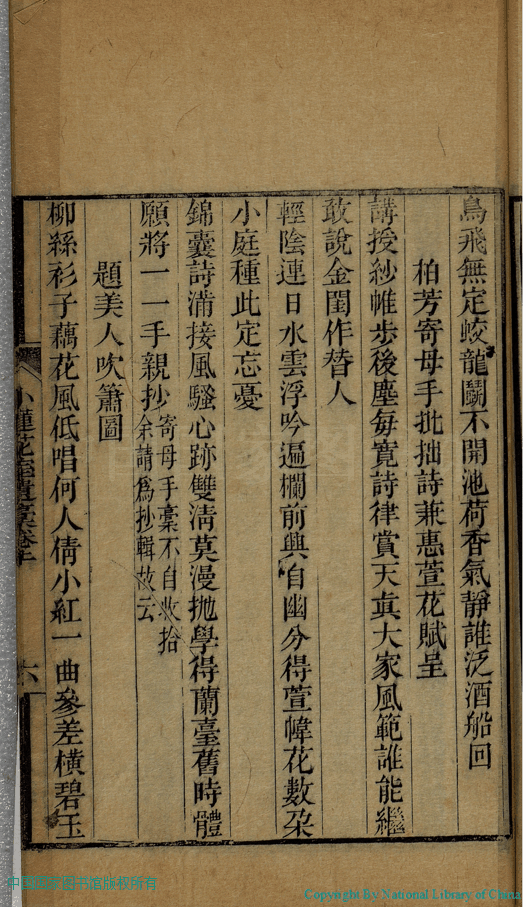 鳥飛無定蛟龍鬭不開池荷香氣靜誰泛酒船回
柏芳寄母手批拙詩兼惠萱花賦呈
講授紗帷步後塵每寬詩律賞天眞大家風範誰能繼
敢說金閨作替人
輕陰連日水雲浮吟遍欄前興自幽分得萱幃花數朶
小庭種此定忘憂
錦囊詩滿接風騷心跡雙淸莫漫拋學得蘭臺舊時體
願將一一手親抄寄母手稾不自收拾
余請爲抄輯故云
題美人吹簫圖
柳絲衫子藕花風低唱何人倩小紅一曲參差橫碧玉
小蓮花室遺稾卷上
六
中国国家图书馆版权所有
Copyright By National Library of China